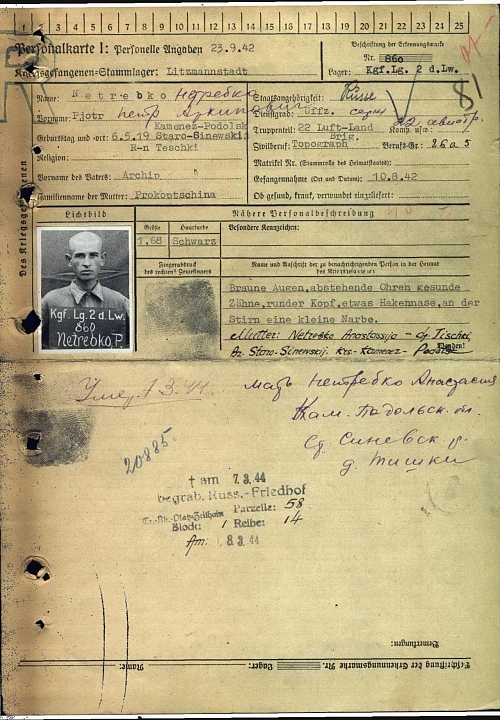 1 2 3 4 5 6 7 8 9 10 11 12 13 14 15 16 17 18 19 20 21 22 23 24 25
Personalkarte I: Personelle Angaben 23.9.42
Beschriftung der Erkennungsmarke
Nr. 860
Kriegsgefangenen-Stammlager: Litzmannstadt
Lager: Kgf.Lg. 2 d.Lw.
Des Kriegsgefangenen
Name: Netrebko Нетребко
Vorname: Pjotr Петр
Kamenez-Podolsk
Geburtstag und -ort: 6.5.19 Staro-Sinewski
R-n Teschki
Religion:
Vorname des Vaters: Archip
Familienname der Mutter: Prokoptschina
Staatsangehörigkeit: Russe
Dienstgrad: Uffz.
Truppenteil: 22 Luft-Land Komp. usw.:
Brig.
Zivilberuf: Topograph Berufs-Gr.: 26a5
Matrikel Nr. (Stammrolle des Heimatstaates):
Gefangennahme (Ort und Datum): 10.8.42
Ob gesund, krank, verwundet eingeliefert:
81
Lichtbild
Nähere Personalbeschreibung
Größe Haarfarbe Besondere Kennzeichen:
1,68 Schwarz
Fingerabdruck
des rechten Zeigefingers
Name und Anschrift der zu benachrichtigenden Person in der Heimat
des Kriegsgefangenen
Kgf. Lg. 2 d. Lw.
860
Netrebko, P.
Braune Augen, abstehende Ohren gesunde
Zähne, runder Kopf, etwas Hakennase, an der
Stirn eine kleine Narbe.
Mutter: Netrebko Anastassija - dr Tischki,
Staro-Sinewskij. Kamenez-Podolsk
Wenden!
мать Нетребко Анастасия
Кам. Подольск.
Ст. Синевск р.
д. Тишки
20885.
† am 7.3.44
begrab. Russ.-Friedhof
Parzelle: 58
Block: 1 Reihe: 14
Am: 8.3.44
Bemerkungen:
Beschriftung der Erkennungsmarke Nr. Lager: Name: